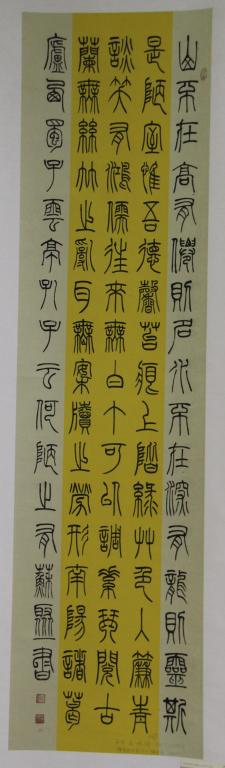 山不在高有僊則名水不在深有龍則靈斯
是陋室惟吾德馨苔痕上階綠艸色入簾青
談笑有鴻儒往來無白丁可以調素琴閱古
蘭無絲竹之亂耳無案牘之勞形南陽諸葛
廬西蜀子雲亭孔子云何陋之有蘇書